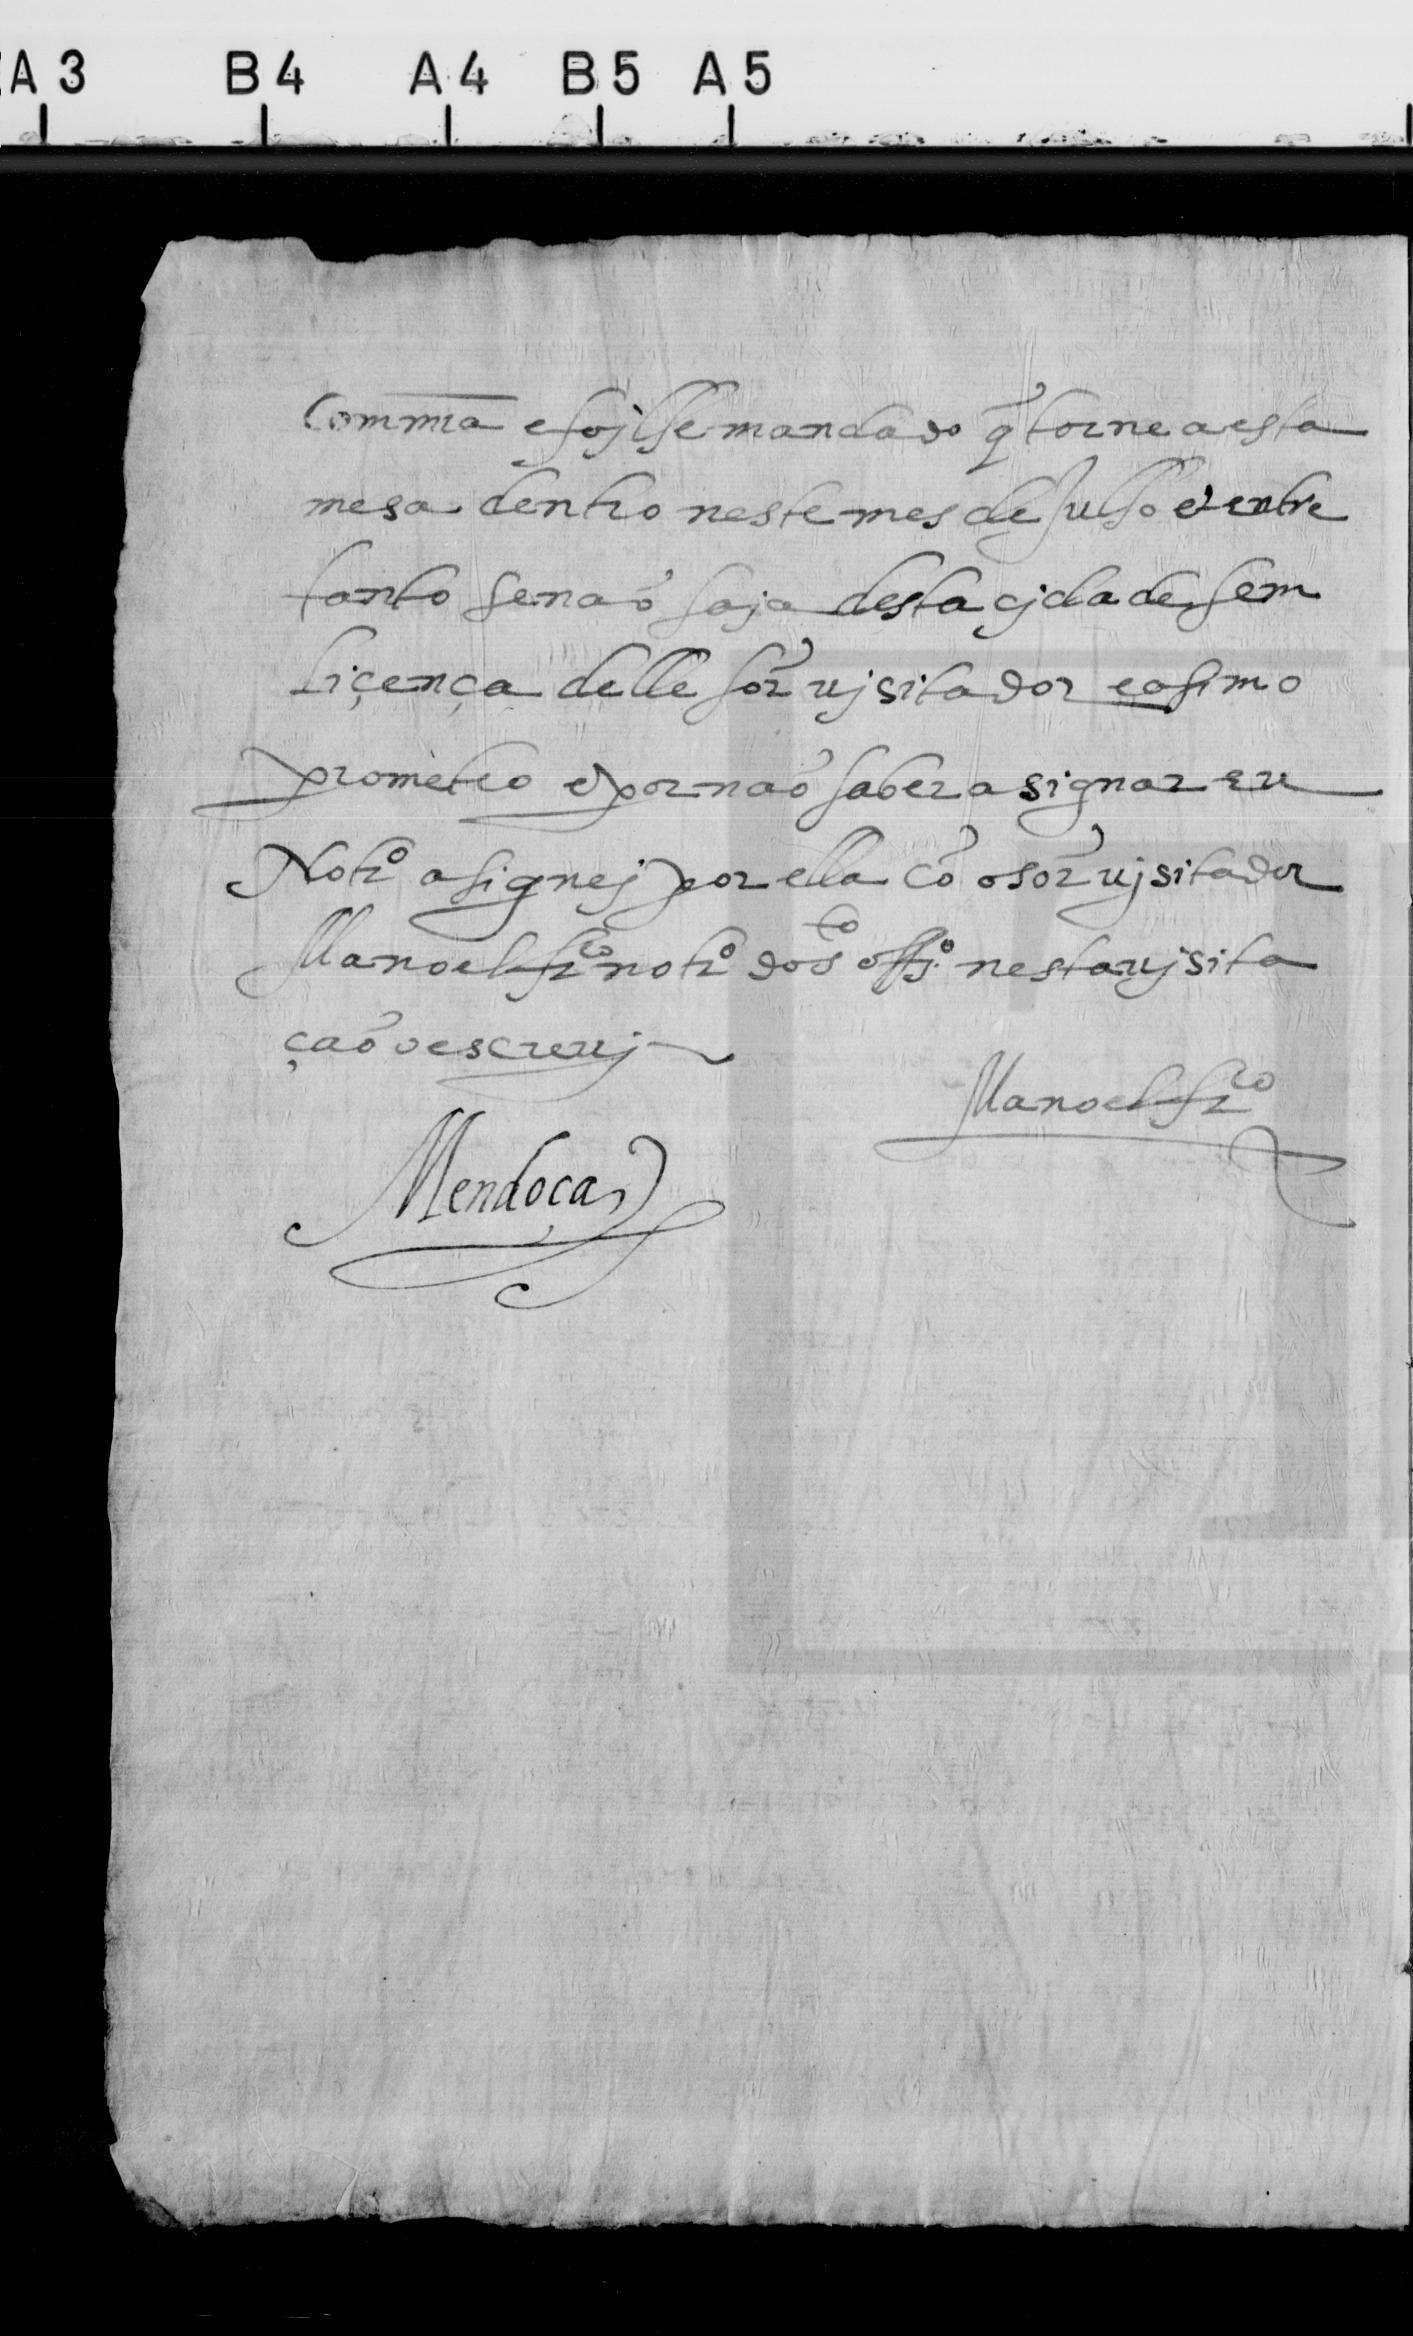 A3 B4 A4 B5 A5
Com mia e fojlhe mandado q̃ torne a esta
mesa dentro neste mes de Julho e entre
tanto se naõ saja desta cjdade sem
liçença delle sõr vjsitador e asi mo
prometeo e por naõ saber asignar eu
Notrº asignej por ella cõ o sõr vjsitador
Manoel frco notrº do sto offjº nesta vjsita
çaõ o escreuj
Manoel frco
Mendoça